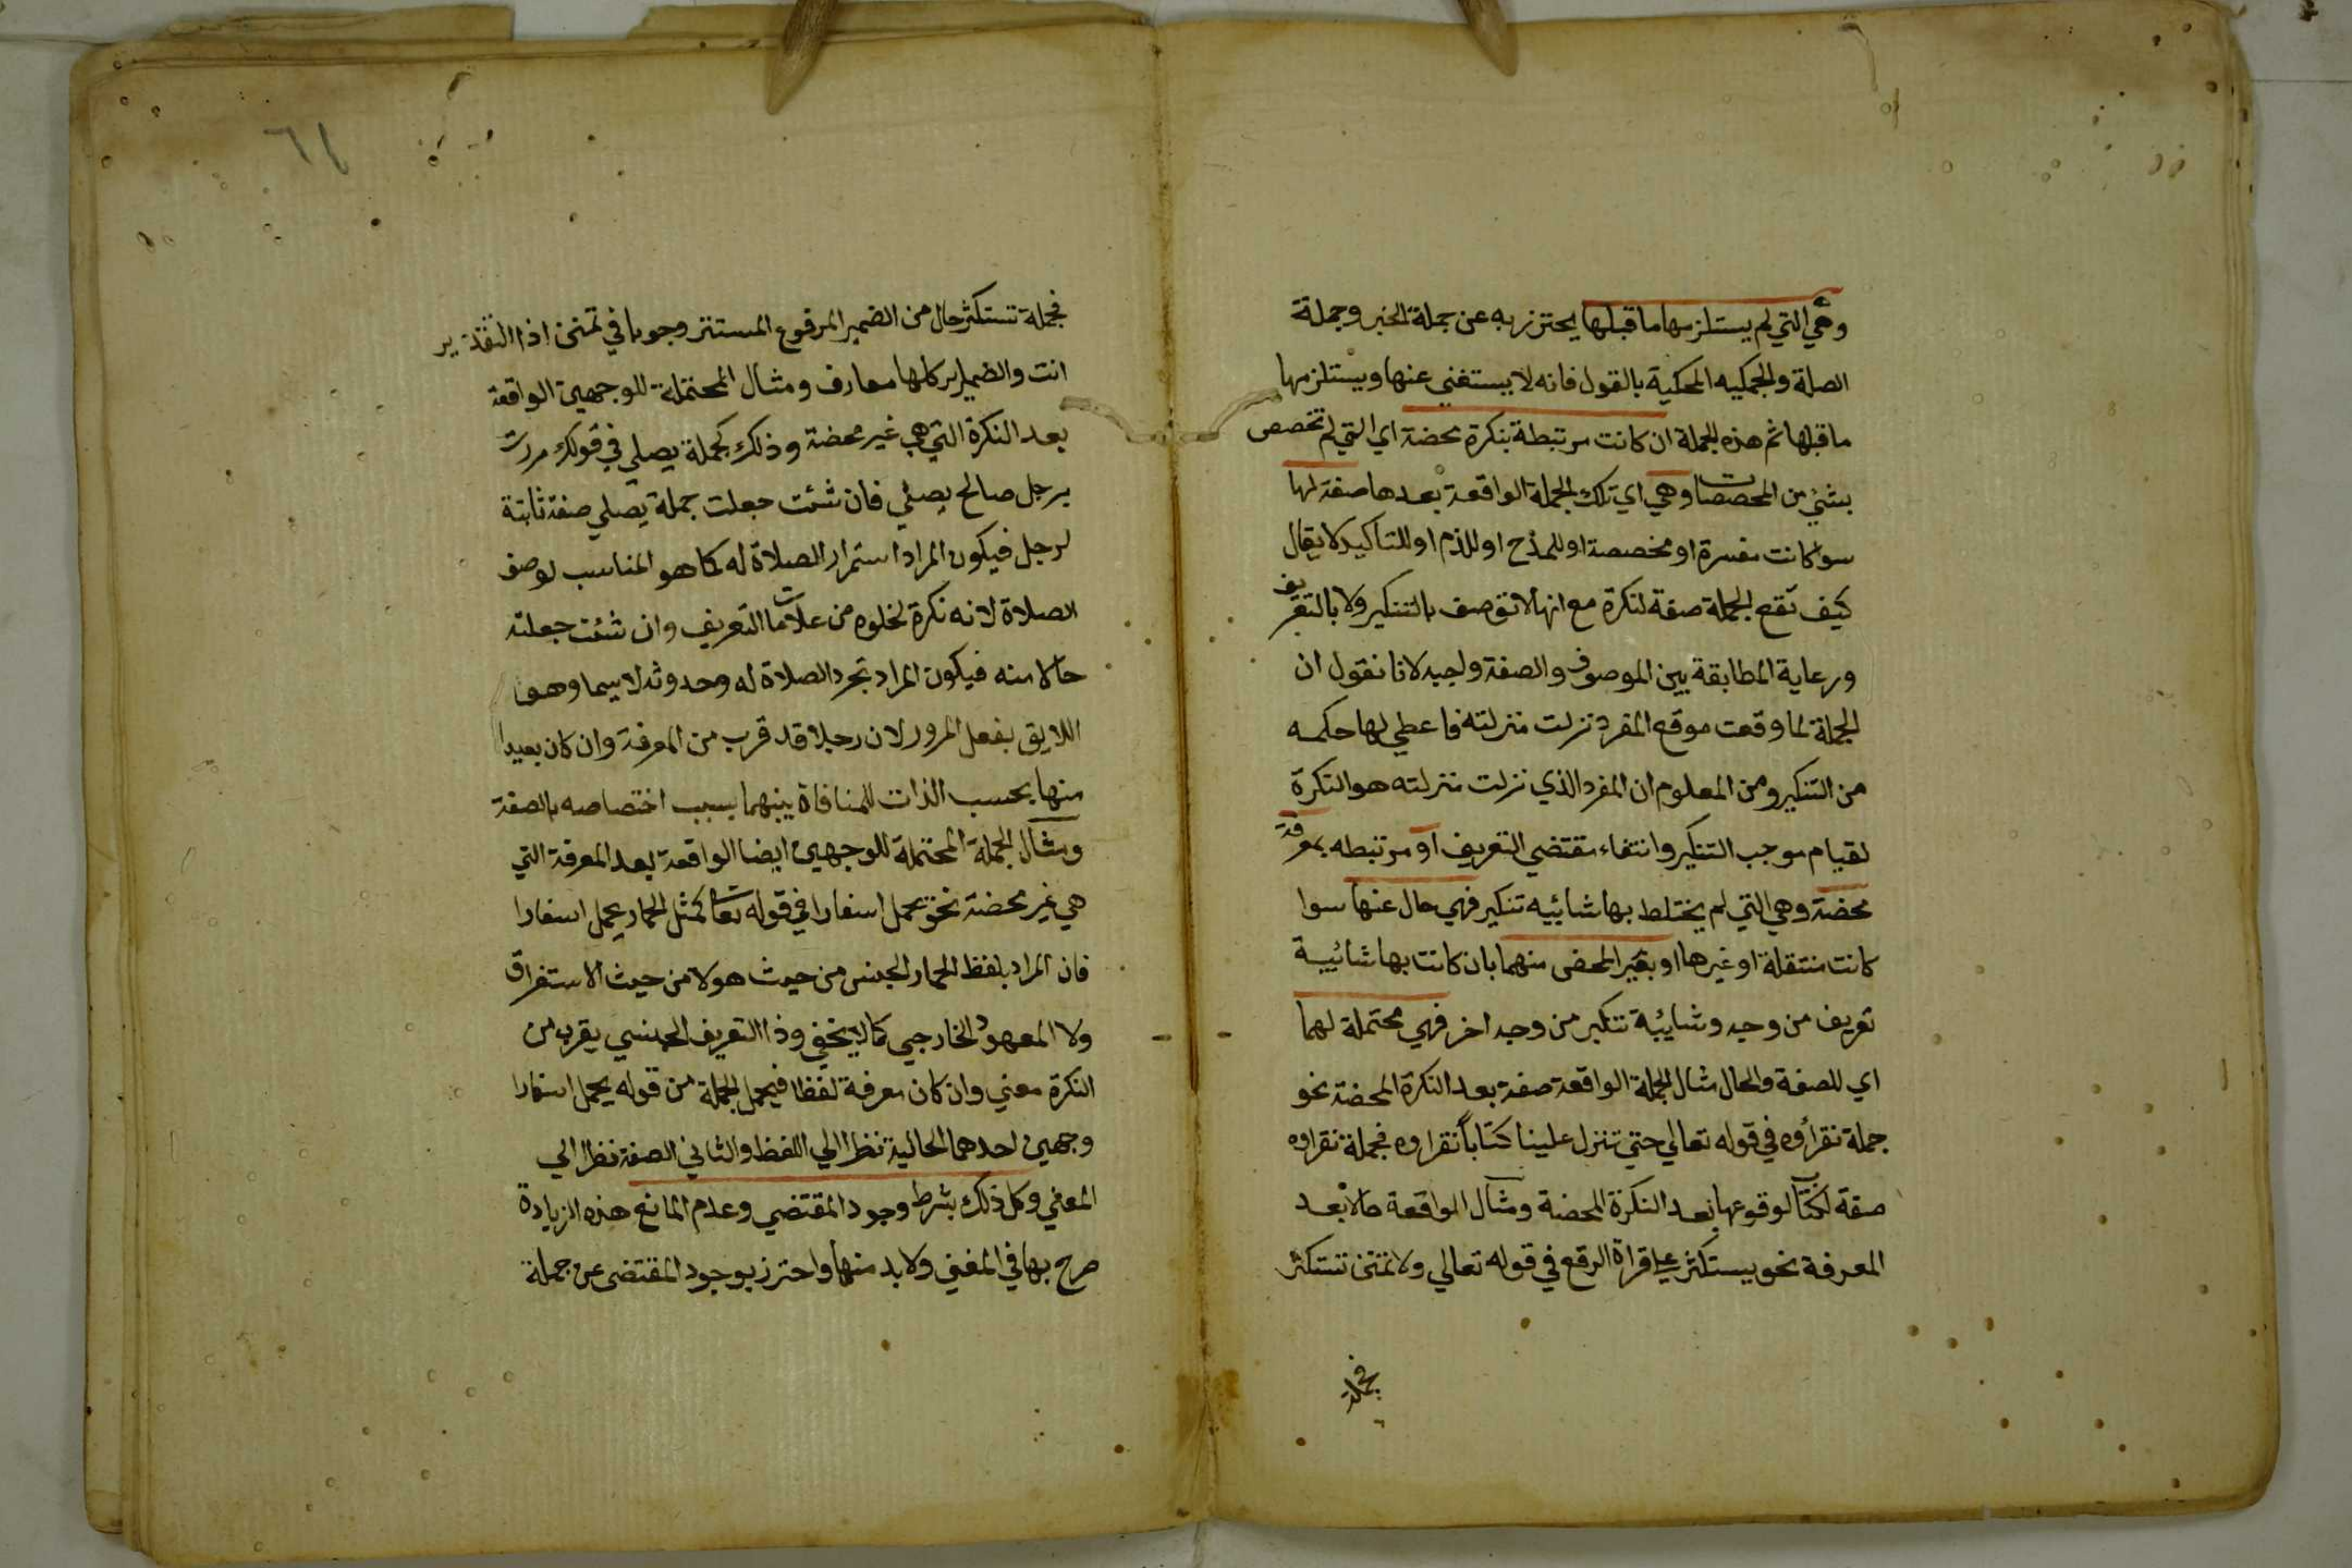 وهي التي لم يستلزمها ما قبلها يحترز به عن جملة الخبر وجملة
الصلة والجمليه المحكية بالقول فانه لا يستغني عنها ويستلزمها
ما قبلها ثم هذه الجملة ان كانت مرتبطة بنكرة محضة اي التي لم تخصص
بشئ من المخصصات وهي اي تلك الجملة الواقعة بعدها صفة لها
سوا كانت مفسرة او مخصصة او للمدح او للذم او للتاكيد لا يقال
كيف تقع الجملة صفة لنكرة مع انها لا توصف بالتنكير ولا بالتعريف
ورعاية المطابقة بين الموصوف والصفة واجبه لانا نقول ان
الجملة لما وقعت موقع المفرد نزلت منزلته فاعطي لها حكمه
من التنكير ومن المعلوم ان المفرد الذي نزلت منزلته هو النكرة
لقيام موجب التنكير وانتفاء مقتضي التعريف او مرتبطه بمعرفة
محضة وهي التي لم يختلط بها شائبيه تنكير فهي حال عنها سوا
كانت منتقلة او غيرها او بغير المحض منهما بان كانت بها شائبية
تعريف من وجه وشايبة تنكير من وجه اخر فهي محتملة لهما
اي للصفة والحال مثال الجملة الواقعة صفة بعد النكرة المحضة نحو
جملة نقرأوه في قوله تعالي حتي تنزل علينا كتاباً نقراوه فجملة نقراوه
صفة لكتاب لوقوعها بعد النكرة المحضة ومثال الواقعة حالا بعد
المعرفة نحو يستكثر علي قراة الرفع في قوله تعالي ولا تمنن تستكثر
فجملة
٦١
فجملة تستكثر حال من الضمير المرفوع المستتر وجوبا في تمنن اذا التقدير
انت والضماير كلها معارف ومثال المحتملة للوجهين الواقعة
بعد النكرة التي هي غير محضة وذلك كجملة يصلي في قولك مررت
برجل صالح يصلي فان شئت جعلت جملة يصلي صفة ثابتة
لرجل فيكون المراد استمرار الصلاة له كما هو المناسب لوصف
الصلاة لانه نكرة لخلوه من علامات التعريف وان شئت جعلته
حالا منه فيكون المراد تجرد الصلاة له وحدوثه لا سيما وهو
اللايق بفعل المرور لان رجلا قد قرب من المعرفة وان كان بعيدا
منها بحسب الذات للمنافاة بينهما بسبب اختصاصه بالصفة
ومثال الجملة المحتملة للوجهين ايضا الواقعة بعد المعرفة التي
هي غير محضة نحو يحمل اسفارا في قوله تعالى كمثل الحمار يحمل اسفارا
فان المراد بلفظ الحمار الجنس من حيث هو لا من حيث الاستغراق
ولا المعهود الخارجي كما لا يخفي وذا التعريف الجنسي يقرب من
النكرة معني وان كان معرفة لفظا فيحمل الجملة من قوله يحمل اسفارا
وجهين احدهما الحالية نظرا الي اللفظ والثاني الصفة نظرا الي
المعني وكل ذلك بشرط وجود المقتضي وعدم المانع هذه الزيادة
صرح بها في المغني ولا بد منها واحترز بوجود المقتضى عن جملة